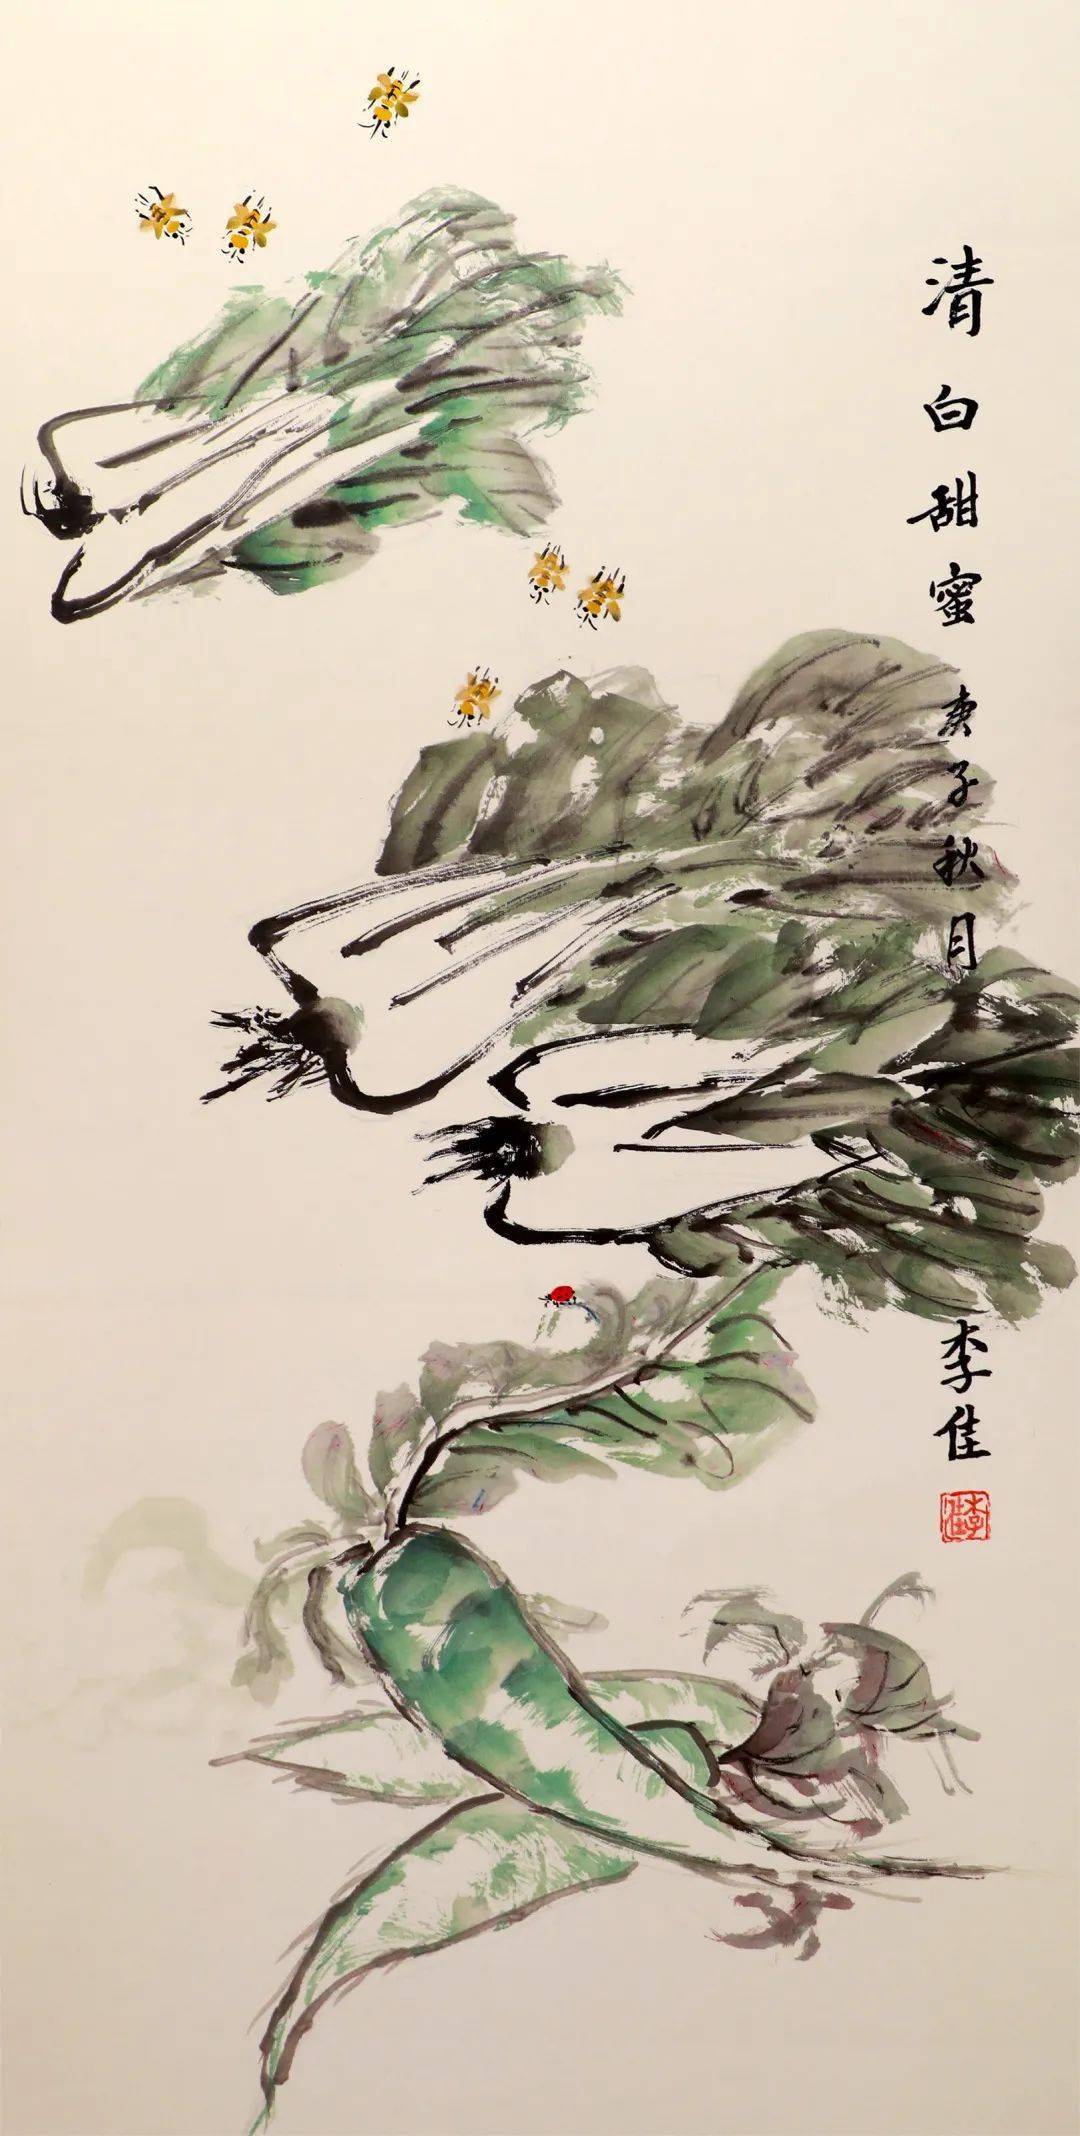 清白甜蜜 庚子秋月 李佳
李佳